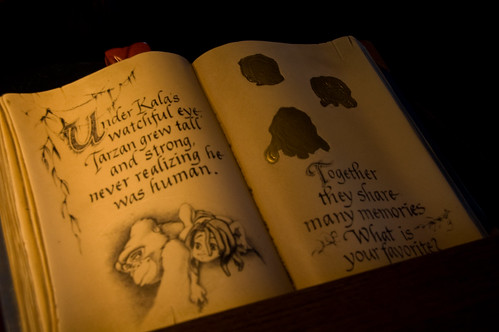 Under Kala's
watchful eye
Tarzan grew tall
and strong,
never realizing he
was human.
Together
they share
many memories.
What is
your favorite?